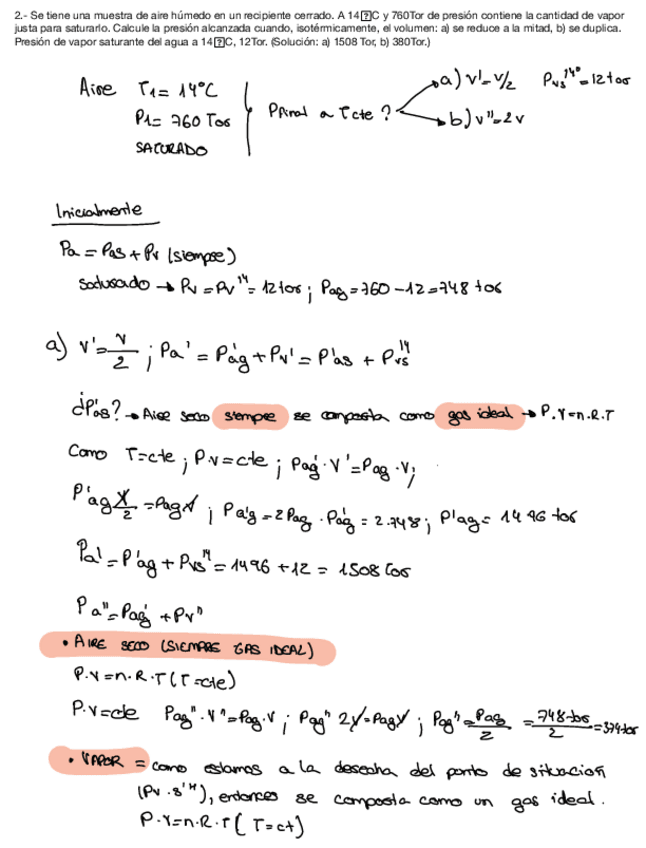 2.- Se tiene una muestra de aire húmedo en un recipiente cerrado. A 14�C y 760Tor de presión contiene la cantidad de vapor
justa para saturarlo. Calcule la presión alcanzada cuando, isotérmicamente, el volumen: a) se reduce a la mitad, b) se duplica.
Presión de vapor saturante del agua a 14�C, 12Tor. (Solución: a) 1508 Tor, b) 380Tor.)
Aire T1 = 14°C
P1 = 760 Tor
SATURADO
PFinal a T cte ?
a) V' = V/2 Pvs^14° = 12 tor
b) V'' = 2V
Inicialmente
Pa = Pas + Pv (siempre)
Saturado → Pv = Pv^14 = 12 tor ; Pag = 760 - 12 = 748 tor
a) V' = V/2 ; Pa' = P'ag + Pv' = P'as + Pvs^14
¿P'as? → Aire seco siempre se comporta como gas ideal → P.V = n.R.T
Como T = cte ; P.v = cte ; Pag' · V' = Pag · V ;
P'ag V/2 = Pag V ; Pa'g = 2 Pag · Pa'g = 2.748 ; P'ag = 1496 tor
Pa' = P'ag + Pvs^14 = 1496 + 12 = 1508 tor
Pa'' = Pag' + Pv''
• AIRE SECO (SIEMPRE GAS IDEAL)
P.V = n.R.T (T = cte)
P.V = cte Pag''.V'' = Pag.V ; Pag'' 2V = Pag V ; Pag'' = Pag/2 = 748 tor/2 = 374 tor
• VAPOR = como estamos a la derecha del punto de situación
(Pv.s^14), entonces se comporta como un gas ideal.
P.V = n.R.T (T = ct)